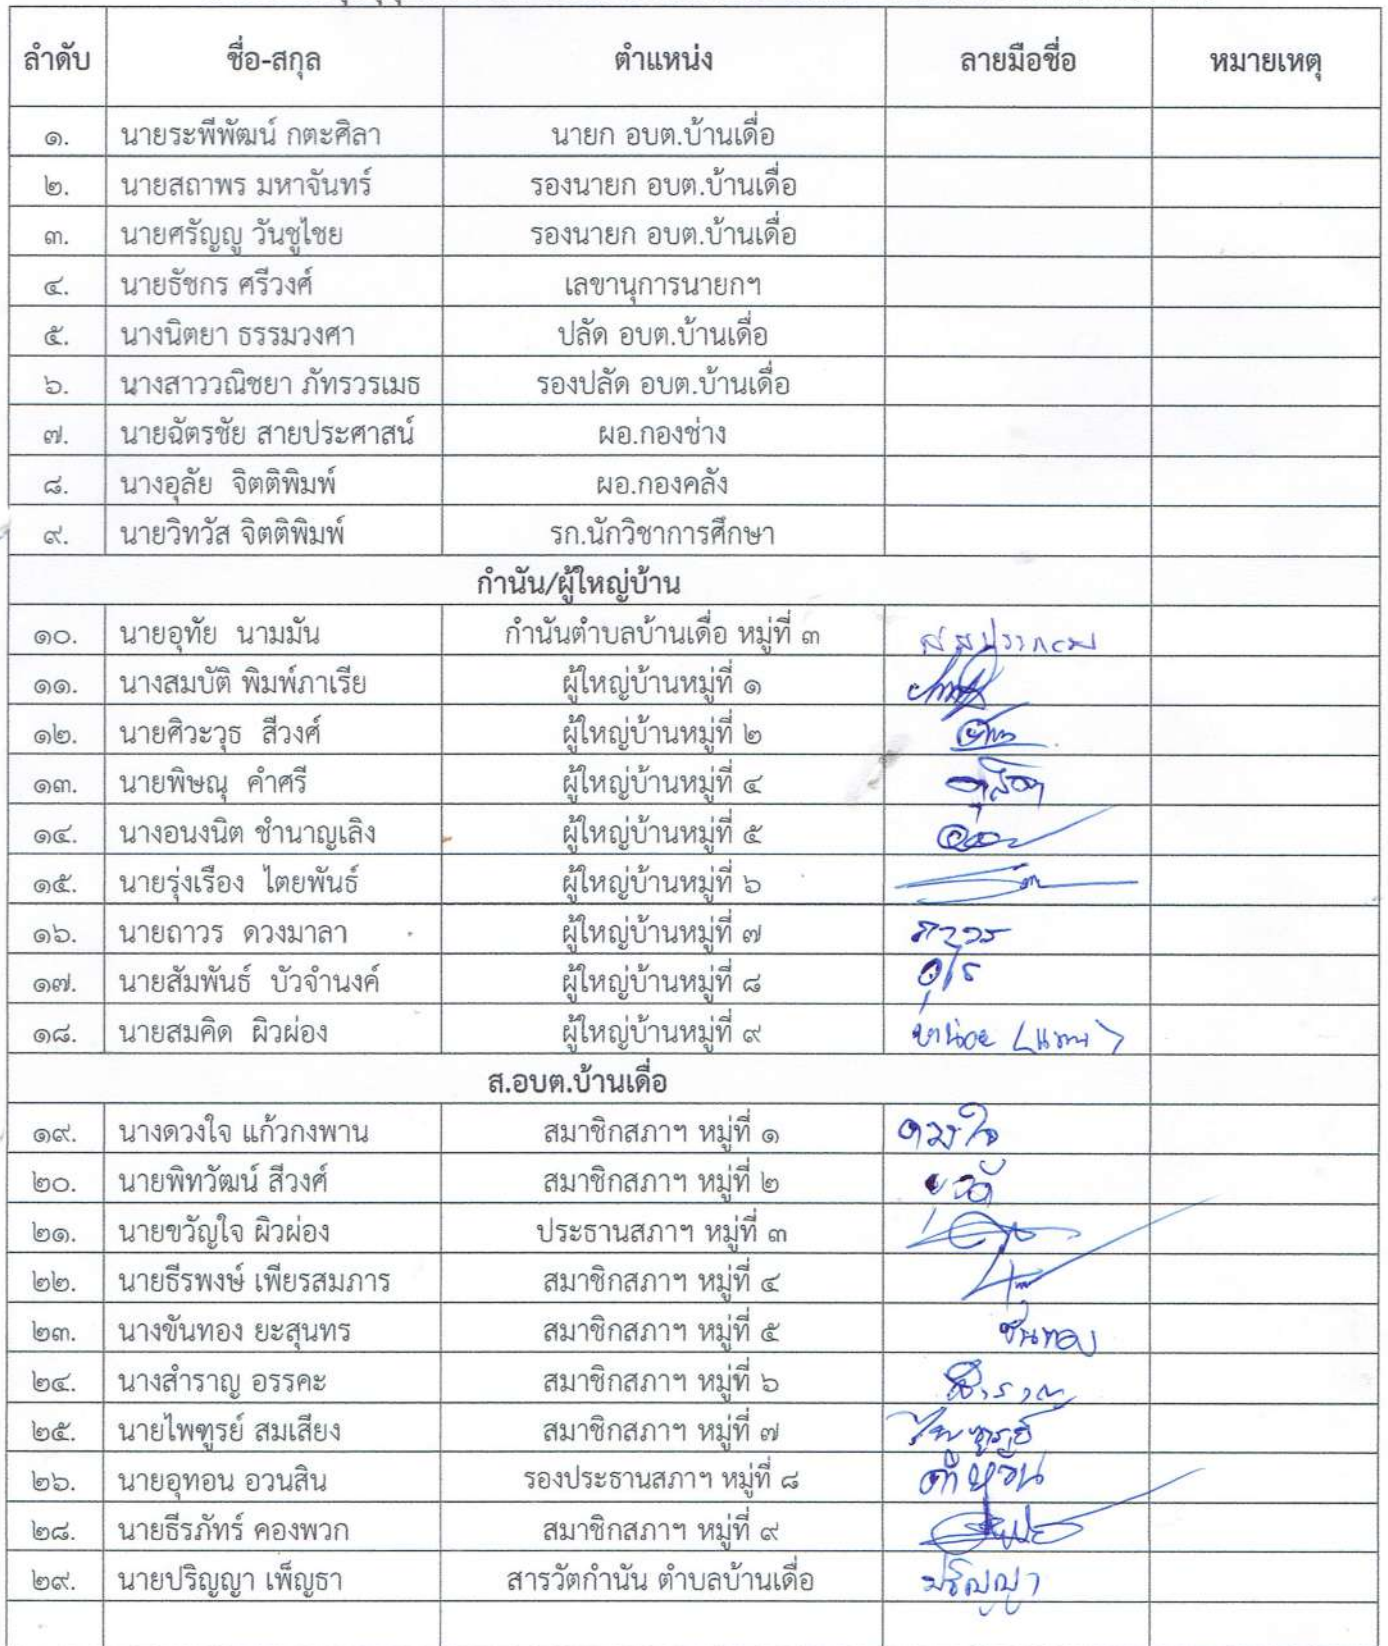 ลำดับ ชื่อ-สกุล ตำแหน่ง ลายมือชื่อ หมายเหตุ
๑. นายระพีพัฒน์ กตะศิลา นายก อบต.บ้านเดื่อ
๒. นายสถาพร มหาจันทร์ รองนายก อบต.บ้านเดื่อ
๓. นายศรัญญู วันชูไชย รองนายก อบต.บ้านเดื่อ
๔. นายธัชกร ศรีวงศ์ เลขานุการนายกฯ
๕. นางนิตยา ธรรมวงศา ปลัด อบต.บ้านเดื่อ
๖. นางสาววณิชยา ภัทรวรเมธ รองปลัด อบต.บ้านเดื่อ
๗. นายฉัตรชัย สายประศาสน์ ผอ.กองช่าง
๘. นางอุลัย จิตติพิมพ์ ผอ.กองคลัง
๙. นายวิทวัส จิตติพิมพ์ รก.นักวิชาการศึกษา
กำนัน/ผู้ใหญ่บ้าน
๑๐. นายอุทัย นามมัน กำนันตำบลบ้านเดื่อ หมู่ที่ ๓
๑๑. นางสมบัติ พิมพ์ภาเรีย ผู้ใหญ่บ้านหมู่ที่ ๑
๑๒. นายศิวะวุธ สีวงศ์ ผู้ใหญ่บ้านหมู่ที่ ๒
๑๓. นายพิษณุ คำศรี ผู้ใหญ่บ้านหมู่ที่ ๔
๑๔. นางอนงนิต ชำนาญเลิง ผู้ใหญ่บ้านหมู่ที่ ๕
๑๕. นายรุ่งเรือง ไตยพันธ์ ผู้ใหญ่บ้านหมู่ที่ ๖
๑๖. นายถาวร ดวงมาลา ผู้ใหญ่บ้านหมู่ที่ ๗ ถาวร
๑๗. นายสัมพันธ์ บัวจำนงค์ ผู้ใหญ่บ้านหมู่ที่ ๘
๑๘. นายสมคิด ผิวผ่อง ผู้ใหญ่บ้านหมู่ที่ ๙
ส.อบต.บ้านเดื่อ
๑๙. นางดวงใจ แก้วกงพาน สมาชิกสภาฯ หมู่ที่ ๑ ดวงใจ
๒๐. นายพิทวัฒน์ สีวงศ์ สมาชิกสภาฯ หมู่ที่ ๒
๒๑. นายขวัญใจ ผิวผ่อง ประธานสภาฯ หมู่ที่ ๓
๒๒. นายธีรพงษ์ เพียรสมภาร สมาชิกสภาฯ หมู่ที่ ๔
๒๓. นางขันทอง ยะสุนทร สมาชิกสภาฯ หมู่ที่ ๕ ขันทอง
๒๔. นางสำราญ อรรคะ สมาชิกสภาฯ หมู่ที่ ๖ สำราญ
๒๕. นายไพฑูรย์ สมเสียง สมาชิกสภาฯ หมู่ที่ ๗ ไพฑูรย์
๒๖. นายอุทอน อวนสิน รองประธานสภาฯ หมู่ที่ ๘
๒๘. นายธีรภัทร์ คองพวก สมาชิกสภาฯ หมู่ที่ ๙
๒๙. นายปริญญา เพ็ญธา สารวัตกำนัน ตำบลบ้านเดื่อ ปริญญา